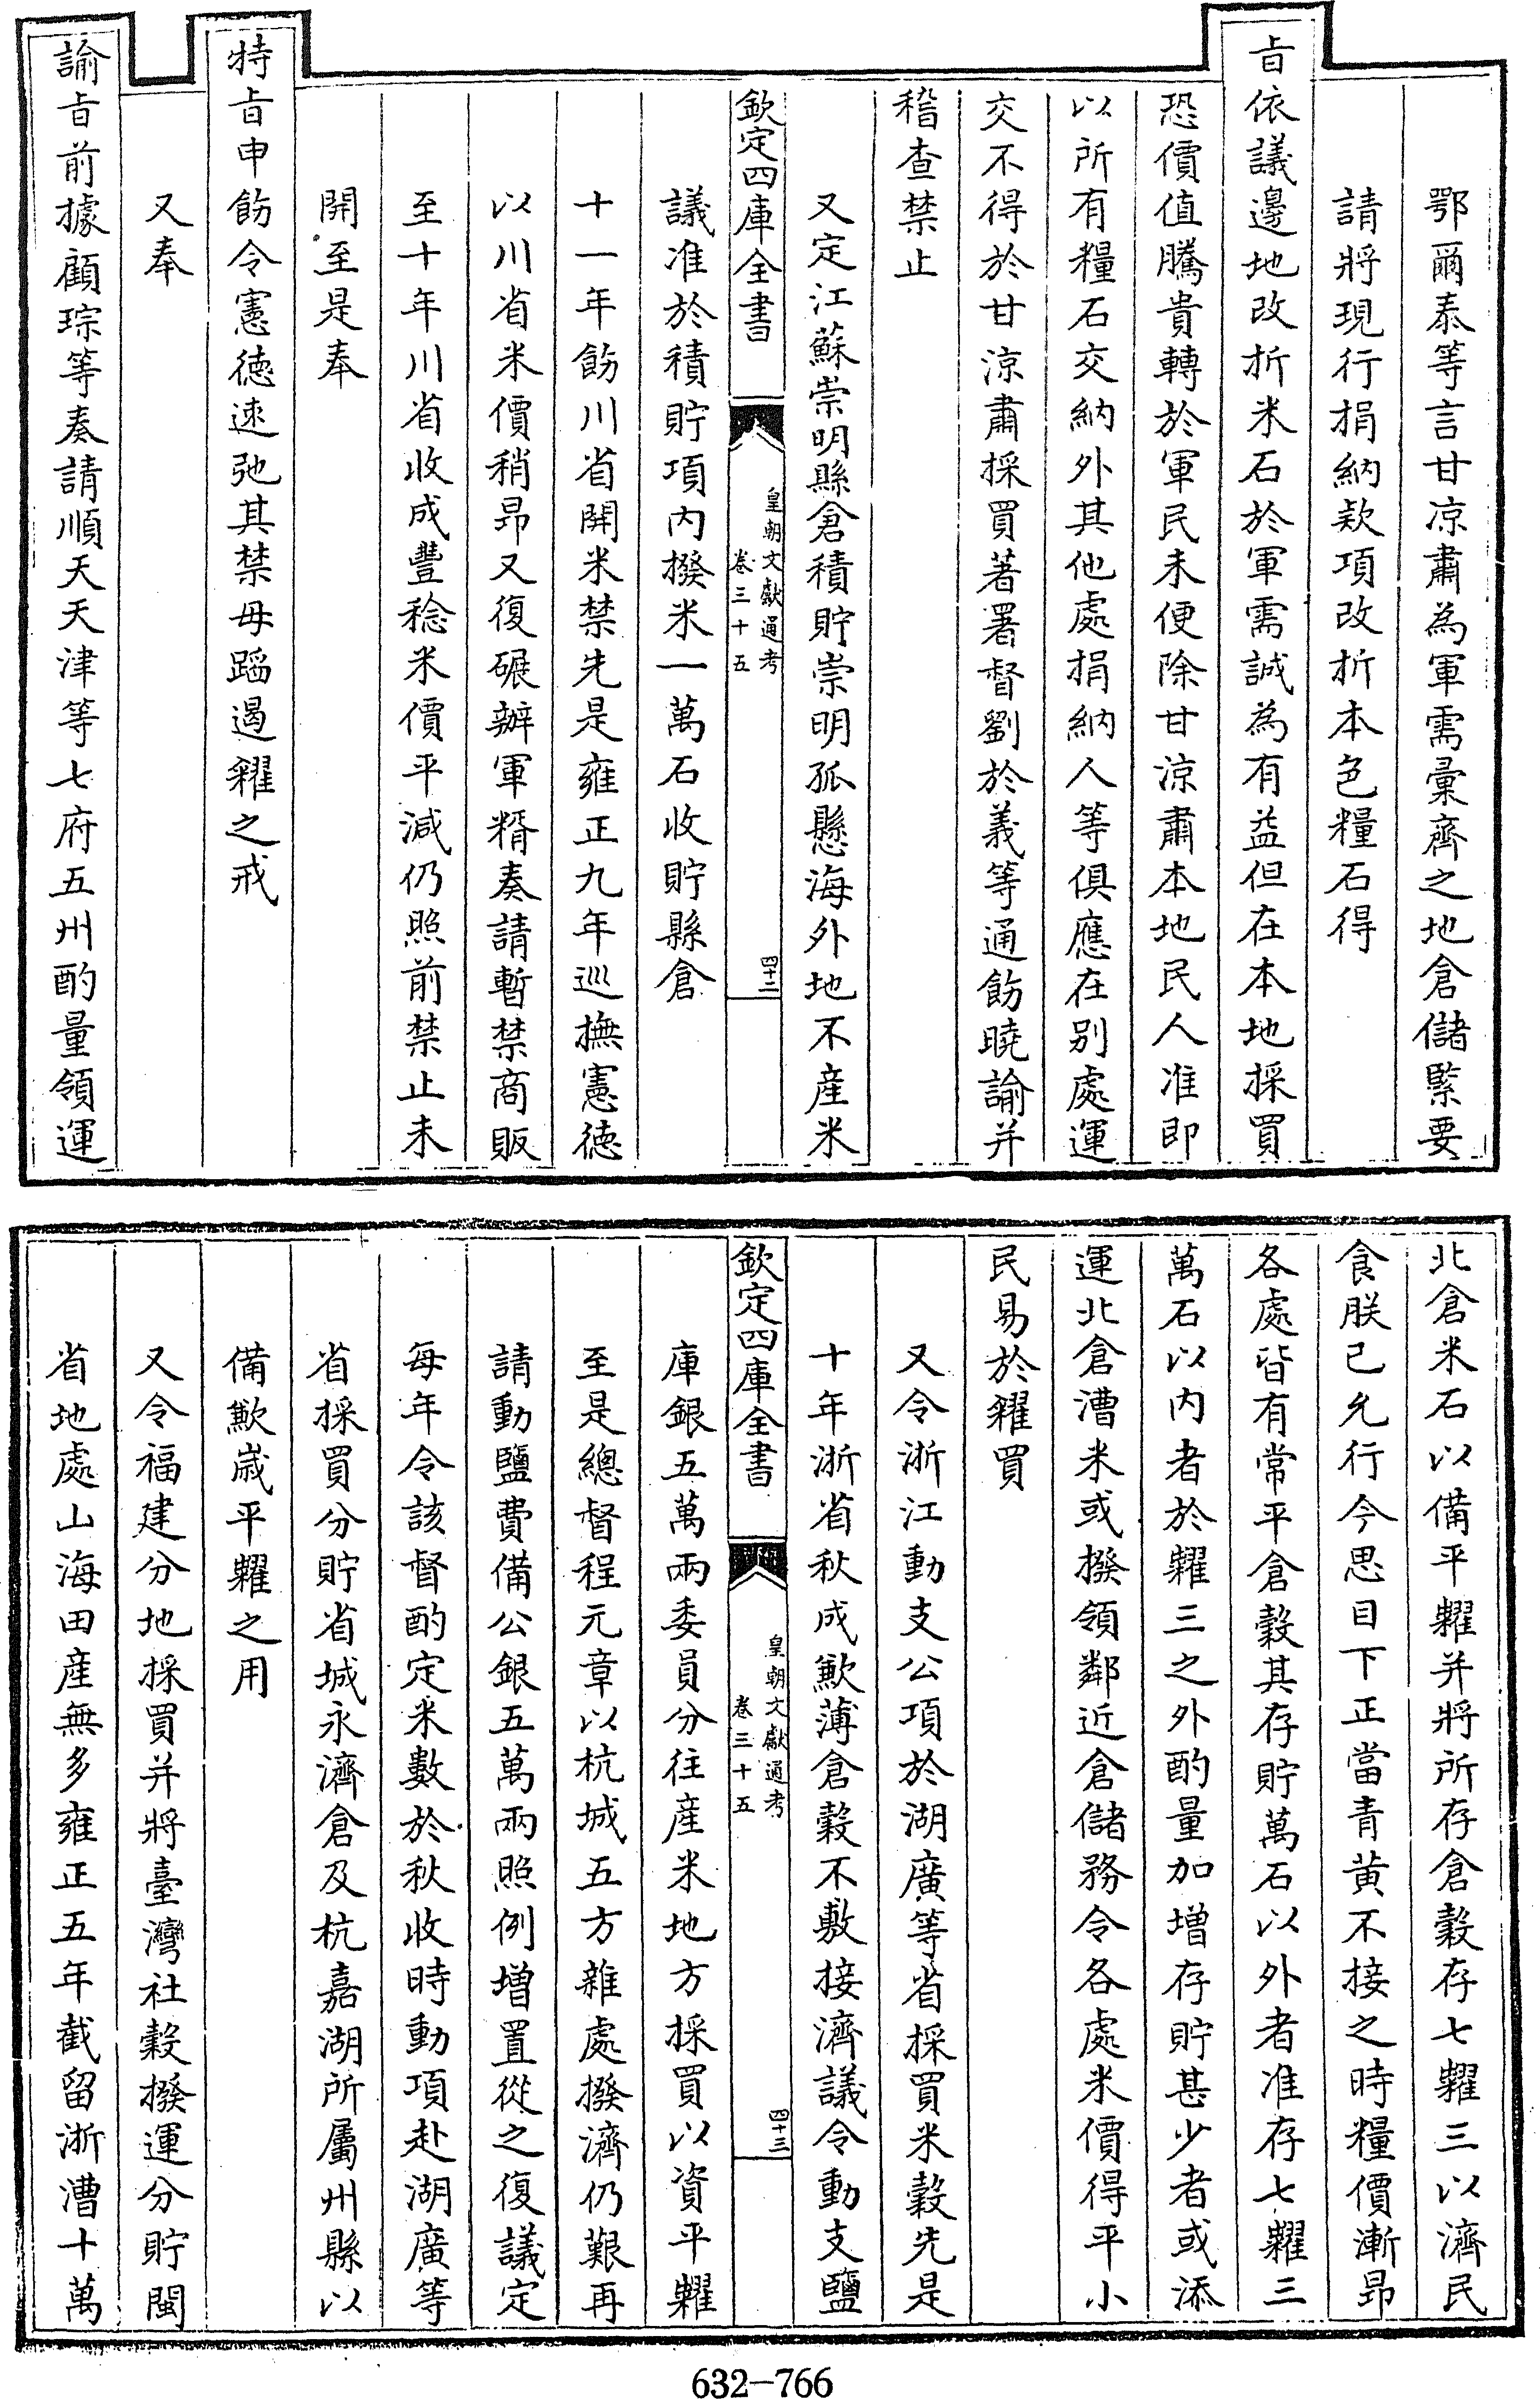 鄂爾泰等言甘凉肅為軍需彙齊之地倉儲緊要
請將現行捐納款項改折本色糧石得
旨依議邊地改折米石於軍需誠為有益但在本地採買
恐價值騰貴轉於軍民未便除甘凉肅本地民人准即
以所有糧石交納外其他處捐納人等俱應在别處運
交不得於甘凉肅採買著署督劉於義等通飭曉諭并
稽查禁止
又定江蘇崇明縣倉積貯崇明孤懸海外地不産米
欽定四庫全書
皇朝文獻通考
卷三十五
四十二
議准於積貯項内撥米一萬石收貯縣倉
十一年飭川省開米禁先是雍正九年巡撫憲德
以川省米價稍昂又復碾辦軍糈奏請暫禁商販
至十年川省收成豐稔米價平減仍照前禁止未
開至是奉
特旨申飭令憲德速弛其禁毋蹈遏糴之戒
又奉
諭旨前據顧琮等奏請順天天津等七府五州酌量領運
北倉米石以備平糶并將所存倉穀存七糶三以濟民
食朕已允行今思目下正當青黄不接之時糧價漸昻
各處皆有常平倉穀其存貯萬石以外者准存七糶三
萬石以内者於糶三之外酌量加增存貯甚少者或添
運北倉漕米或撥領鄰近倉儲務令各處米價得平小
民易於糴買
又令浙江動支公項於湖廣等省採買米穀先是
十年浙省秋成歉薄倉穀不敷接濟議令動支鹽
欽定四庫全書
皇朝文獻通考
卷三十五
四十三
庫銀五萬兩委員分往産米地方採買以資平糶
至是總督程元章以杭城五方雜處撥濟仍艱再
請動鹽費備公銀五萬兩照例增置從之復議定
每年令該督酌定米數於秋收時動項赴湖廣等
省採買分貯省城永濟倉及杭嘉湖所屬州縣以
備歉歲平糶之用
又令福建分地採買并將臺灣社穀撥運分貯閩
省地處山海田産無多雍正五年截留浙漕十萬
632-766